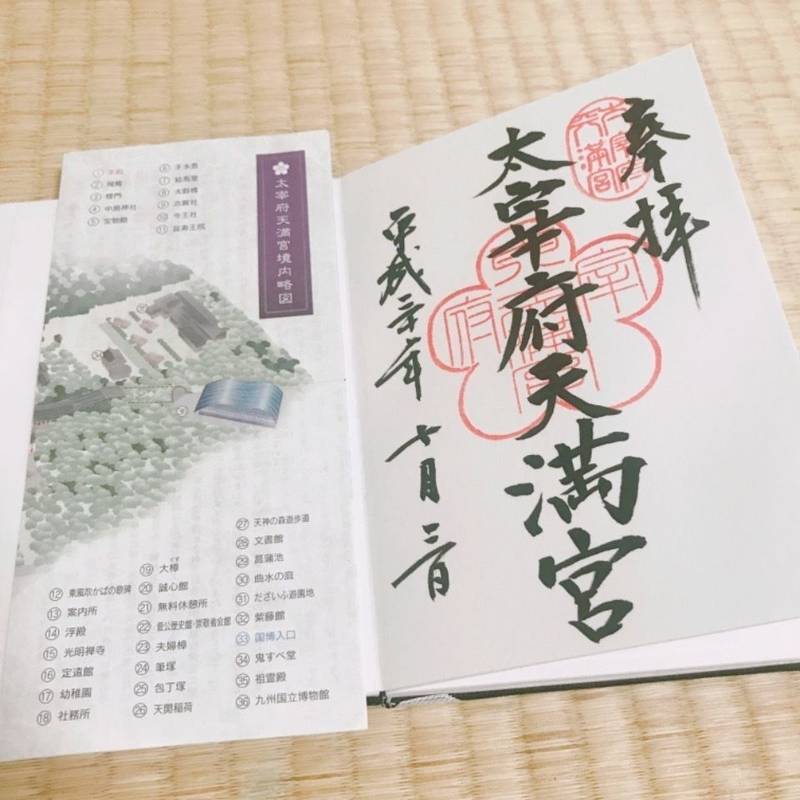 太宰府天満宮境内略図
① 本殿
② 飛梅
③ 楼門
④ 中島神社
⑤ 宝物殿
⑥ 手水舎
⑦ 絵馬堂
⑧ 太鼓橋
⑨ 志賀社
⑩ 今王社
⑪ 延寿王院
⑫ 東風吹かばの歌碑
⑬ 案内所
⑭ 浮殿
⑮ 光明禅寺
⑯ 定遠館
⑰ 幼稚園
⑱ 社務所
⑲ 大樟
くす
⑳ 誠心館
㉑ 無料休憩所
㉒ 菅公歴史館・崇敬者会館
㉓ 夫婦樟
㉔ 筆塚
㉕ 包丁塚
㉖ 天開稲荷
㉗ 天神の森遊歩道
㉘ 文書館
㉙ 菖蒲池
㉚ 曲水の庭
㉛ だざいふ遊園地
㉜ 紫藤館
㉝ 国博入口
㉞ 鬼すべ堂
㉟ 祖霊殿
㊱ 九州国立博物館
奉拝
太宰府天満宮
平成三十年 七月二日